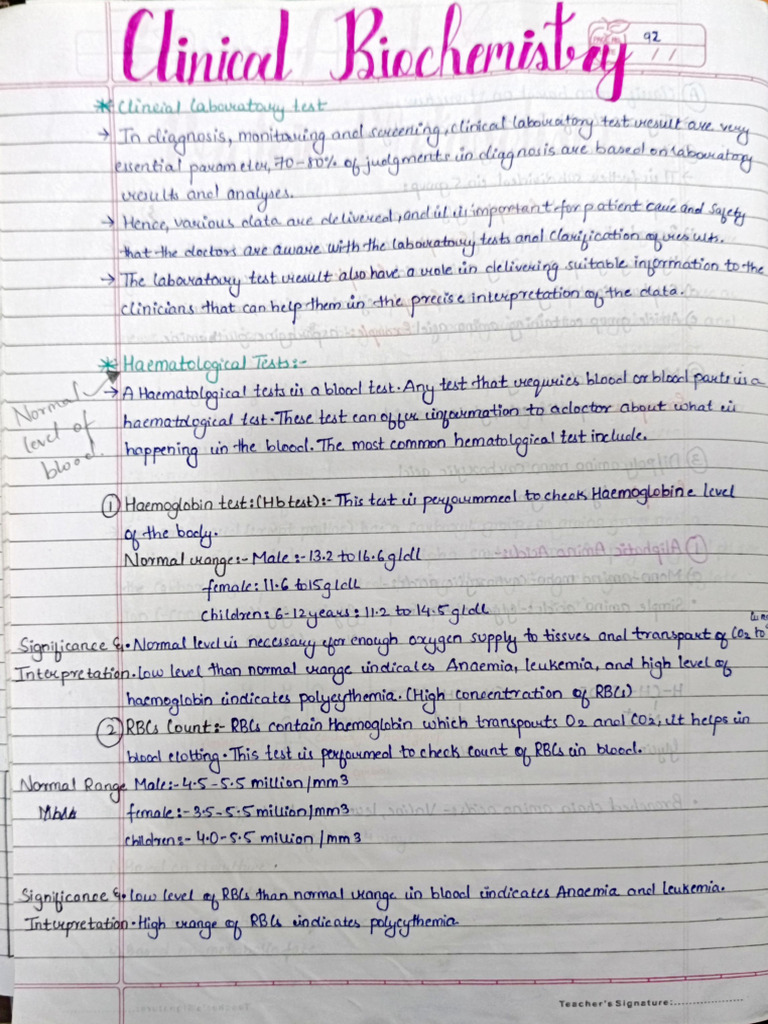 Clinical Biochemistry
92
* Clineial laboratory test
→ In diagnosis, monitoring and screening, clinical laboratory test result are very
essential parameter, 70-80% of judgments in diagnosis are based on laboratory
results and analyses.
→ Hence, various data are delivered, and it is important for patient care and safety
that the doctors are aware with the laboratory tests and clarification of results.
→ The laboratory test result also have a role in delivering suitable information to the
clinicians that can help them in the precise interpretation of the data.
* Haematological Tests:-
Normal level of blood
→ A Haematological tests is a blood test. Any test that requries blood or blood parts is a
haematological test. These test can offer information to a doctor about what is
happening in the blood. The most common hematological test include.
① Haemoglobin test: (Hb test):- This test is perforummed to check Haemoglobine level
of the body.
Normal range:- Male :- 13.2 to 16.6 g/dll
female: 11.6 to 15 g/dll
children: 6-12 years: 11.2 to 14.5 g/dll
Significance &. • Normal level is necessary for enough oxygen supply to tissues and transpart of CO2 to
Interpretation. • low level than normal range indicates Anaemia, leukemia, and high level of
haemoglobin indicates polycythemia. (High concentration of RBCs)
② RBCs Count:- RBCs contain Haemoglobin which transports O2 and CO2, it helps in
blood clotting. This test is performed to check count of RBCs in blood.
Normal Range Male:- 4.5 - 5.5 million/mm3
female:- 3.5 - 5.5 million/mm3
children:- 4.0 - 5.5 million/mm3
Significance &. • low level of RBCs than normal range in blood indicates Anaemia and leukemia.
Intrpretation • High range of RBCs indicates polycythemia.
Teacher's Signature: